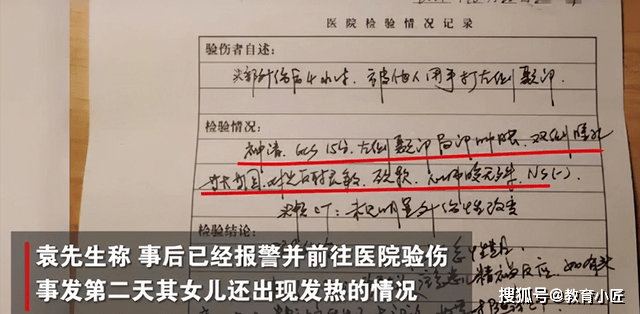 医院检验情况记录
验伤者自述:
头部外伤后4小时,被他人用手打左侧颞部.
检验情况:
神清,GCS 15分,左侧颞部局部肿胀,双侧瞳孔
等大等圆,对光反射灵敏,颈软,NS(-)
头颅CT:未见明显外伤性改变
检验结论:
袁先生称 事后已经报警并前往医院验伤
事发第二天其女儿还出现发热的情况
搜狐号@教育小匠